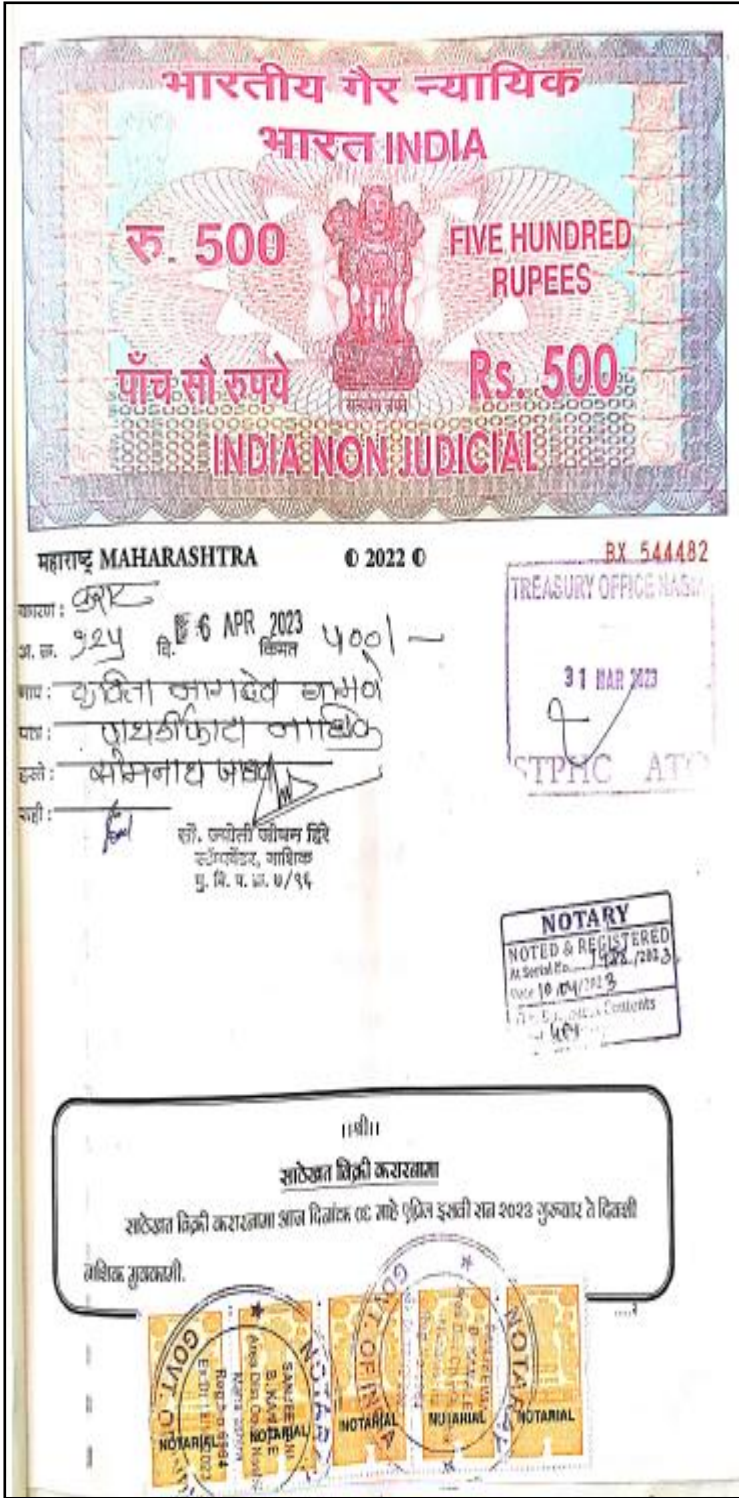 भारतीय गैर न्यायिक
भारत INDIA
रु. 500
FIVE HUNDRED
RUPEES
पाँच सौ रुपये
Rs. 500
सत्यमेव जयते
INDIA NON JUDICIAL
महाराष्ट्र MAHARASHTRA
© 2022 ©
BX 544482
TREASURY OFFICE
31 MAR 2023
STPHC
कारण : करार
अ. क्र. १२५ दि. 6 APR 2023 किंमत ५००/-
नाव : कविता नागदेव
पत्ता : पाथर्डीफाटा नाशिक
हस्ते : सोमनाथ जाधव
सही :
सौ. ज्योती जीवन हिरे
स्टॅम्पवेंडर, नाशिक
मु. वि. प. क्र. ७/९६
NOTARY
NOTED & REGISTERED
At Serial No. /2023
Date 10/04/2023
Contents
॥श्री॥
साठेखत विक्री करारनामा
साठेखत विक्री करारनामा आज दिनांक ०६ माहे एप्रिल इसवी सन २०२३ गुरुवार ते दिवशी
नाशिक मुक्कामी.
....२
NOTARIAL NOTARIAL NOTARIAL NOTARIAL NOTARIAL
NOTARY
GOVT. OF INDIA
B. KAMBLE